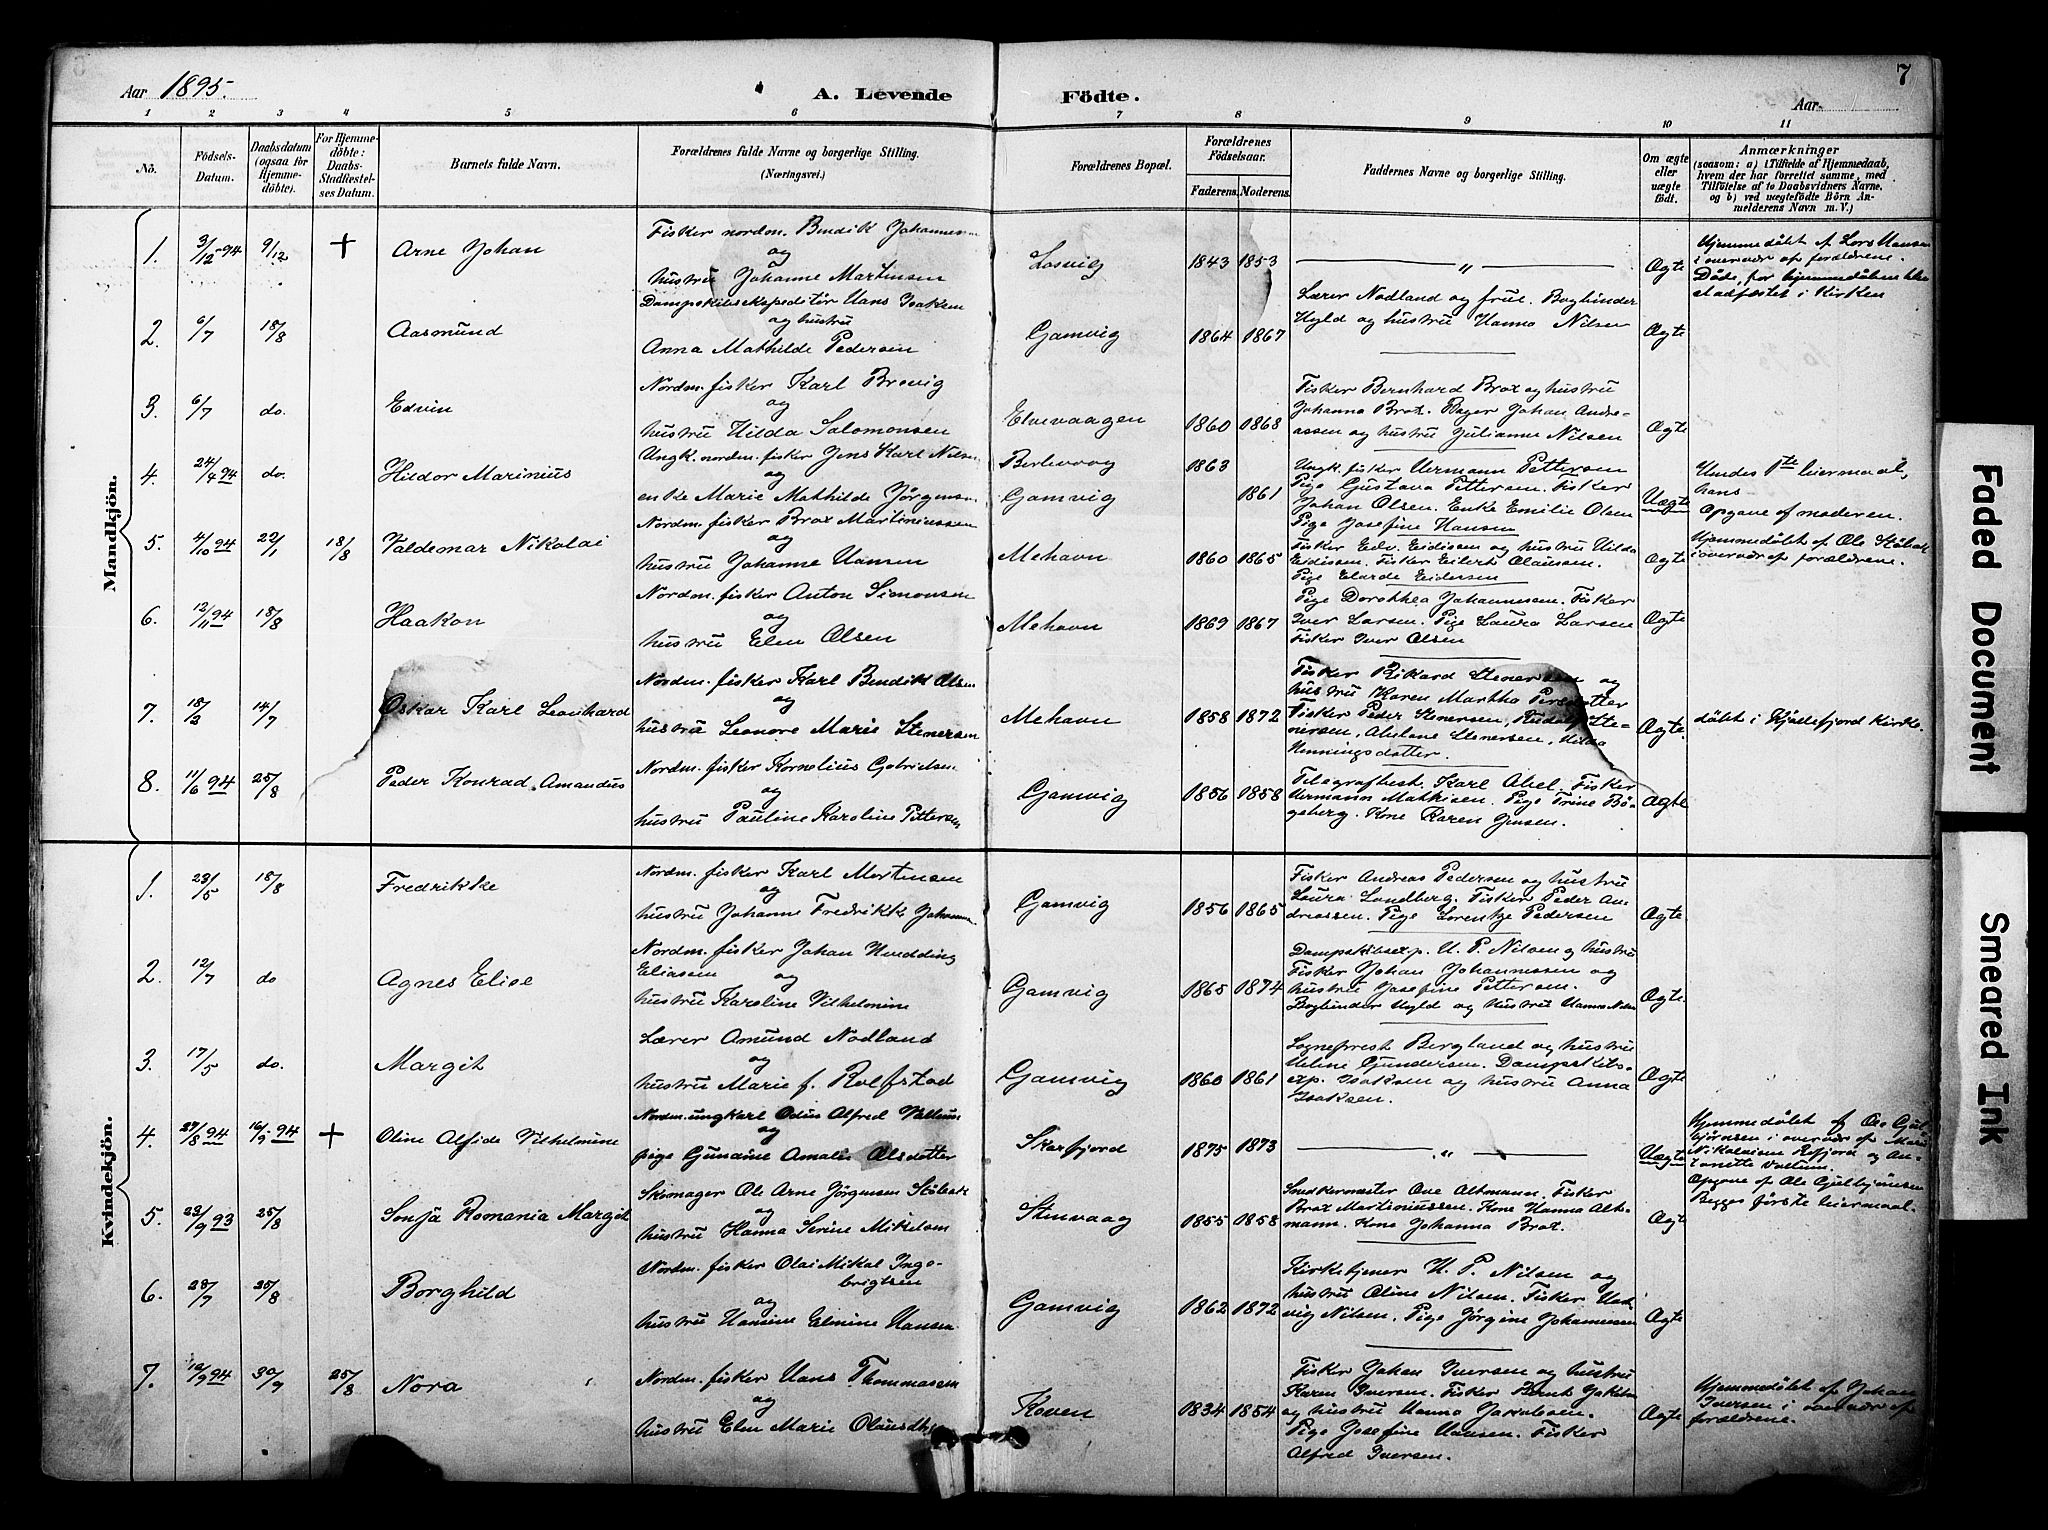 Aar 1895.
A. Levende Födte.
Aar
7
1 2 3 4 5 6 7 8 9 10 11
No.
Födsels-Datum.
Daabsdatum (ogsaa for Hjemme-döbte).
For Hjemme-döbte: Daabs-Stadfæstel-ses Datum.
Barnets fulde Navn.
Forældrenes fulde Navne og borgerlige Stilling.
(Næringsvei.)
Forældrenes Bopæl.
Forældrenes Födselsaar.
Faderens. Moderens.
Faddernes Navne og borgerlige Stilling.
Om ægte eller uægte födt.
Anmærkninger
(saasom: a) i Tilfælde af Hjemmedaab,
hvem der har forrettet samme, med
Tilföielse af to Daabsvidners Navne,
og b) ved uægtefödte Börn An-
melderens Navn m. V.)
Mandkjön.
1. 3/12-94 9/12 + Arne Johan
Fisker nordm. Bendik Johannes
og
hustru Johanne Martinsen
Losvig 1843 1853 — „ — Ægte
Hjemmedöbt af Lars Hansen
i overvær af forældrene.
Döde, før hjemmedaaben blev
stadfæstet i Kirken
2. 6/7 18/8 Aasmund
Dampskibsekspeditör Hans Isaksen
og hustru
Anna Mathilde Pedersen
Gamvig 1864 1867
Lærer Nodland og frue. Bogbinder
Hyld og hustru Hanna Nilsen
Ægte
3. 6/7 do. Edvin
Nordm. fisker Karl Brevig
og
hustru Hilda Salomonsen
Elvevaagen 1860 1868
Fisker Bernhard Brox og hustru
Johanna Brox. Bager Johan Andre-
assen og hustru Julianne Nilsen
Ægte
4. 24/4 94 do. Hildor Marinius
Ungk. nordm. fisker Jens Karl Nilsen
og
enke Marie Mathilde Jörgensen
Berlevaag 1863
Gamvig 1861
Ungk. fisker Hermann Pettersen
Pige Gustava Pettersen. Fisker
Johan Olsen. Enke Emilie Olsen
Pige Josefine Hansen
Uægte
Hendes 1ste leiermaal,
hans
Opgave af moderen.
5. 4/10 94 22/1 18/8 Valdemar Nikolai
Nordm. fisker Brox Martiniussen
og
hustru Johanne Hansen
Mehavn 1860 1865
Fisker Edv. Eidissen og hustru Hilda
Eidissen. Fisker Eilert Olaussen.
Pige Elarde Eidersen
Ægte
Hjemmedöbt af Ole Stöbak
i overvær af forældrene.
6. 12/11 94 18/8 Haakon
Nordm. fisker Anton Simonsen
og
hustru Elen Olsen
Mehavn 1869 1867
Pige Dorothea Johannessen. Fisker
Iver Larsen. Pige Laura Larsen
Fisker Iver Olsen
Ægte
7. 18/2 14/7 Oskar Karl Leonhard
Nordm. fisker Karl Bendik Olsen
og
hustru Leonore Marie Stenersen
Mehavn 1858 1872
Fisker Rikard Stenersen og
hustru Karen Martha Persdatter
Fisker Peder Stenersen, Rudolf Ste-
nersen, Alulane Stenersen, Hilda
Henningsdatter.
Ægte.
döbt i Kjöllefjord Kirke.
8. 11/6 94 25/8 Peder Konrad Amandus
Nordm. fisker Kornelius Gabrielsen
og
hustru Pauline Karoline Pettersen
Gamvig 1856 1858
Telegrafbest. Karl Abel. Fisker
Hermann Mathisen. Pige Trine Bö-
geberg. Kone Karen Jensen.
Ægte
Kvindekjön.
1. 23/5 18/8 Fredrikke
Nordm. fisker Karl Mortensen
og
hustru Johanne Fredrikk Johannes
Gamvig 1856 1865
Fisker Andreas Pedersen og hustru
Laura Lundberg. Fisker Peder An-
dreassen. Pige Lorentze Pedersen
Ægte.
2. 12/7 do Agnes Elise
Nordm. fisker Johan Hendding
Eliasen og
hustru Karoline Vilhelmine
Gamvig 1865 1874
Dampskibsexp. H. P. Nilsen og hustru
Fisker Johan Johannessen og
hustru Josefine Pettersen.
Bogbinder Hyld og hustru Hanna Nilsen
Ægte.
3. 17/5 do. Margit
Lærer Amund Nodland
og
hustru Marie f. Rolfstad
Gamvig 1860 1861
Sogneprest Bergland og hustru
Heline Gundersen. Dampskibs-
exp. Isaksen og hustru Anna
Isaksen.
Ægte
4. 27/8 94 16/9-94 + Oline Alfide Vilhelmine
Nordm. ungkarl Odin Alfred Valtun
og
pige Gunarine Amalie Olsdatter
Skarfjord 1875 1873 — „ — Uægte
Hjemmedöbt af Ole Gjul-
björnsen i overvær af
Nikolaisen Refjord og An-
tonette Valtun.
Opgave af Ole Gjulbjörnsen
Begges förste leiermaal.
5. 23/9 93 25/8 Sonja Romania Margit
Skomager Ole Arne Jörgensen Stöbak
og
hustru Hanna Serine Mikelsen
Stenvaag 1855 1858
Snedkermester Ove Altmann. Fisker
Brox Martiniussen. Kone Hanna Alt-
mann. Kone Johanna Brox.
Ægte
6. 28/7 25/8 Borghild
Nordm. fisker Olai Mikal Inge-
brigtsen
og
hustru Hansine Elmine Hansen
Gamvig 1862 1872
Kirketjener H. P. Nilsen og
hustru Oline Nilsen. Fisker Hed-
vig Nilsen. Pige Jörgine Johannessen
Ægte
7. 10/9 94 30/9 25/8 Nora
Nordm. fisker Hans Thommasen
og
hustru Elen Marie Olausdtr
Koven 1834 1854
Fisker Johan Iversen og hustru
Karen Iversen. Fisker Bernt Jakobsen
og hustru Hanna Jakobsen.
Pige Josefine Hansen. Fisker
Alfred Iversen.
Ægte
Hjemmedöbt af Johan
Iversen i overvær af
forældrene.
Faded Document
Smeared Ink